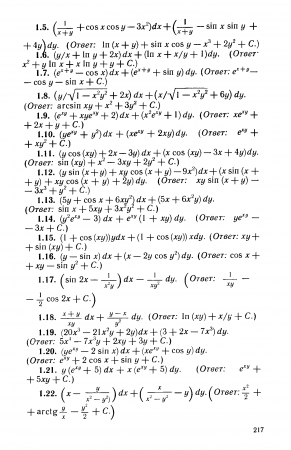 1.5. (1/(x+y) + cos x cos y — 3x²)dx + (1/(x+y) — sin x sin y +
+ 4y)dy. (Ответ: ln (x + y) + sin x cos y — x³ + 2y² + C.)
1.6. (y/x + ln y + 2x)dx + (ln x + x/y + 1)dy. (Ответ:
x² + y ln x + x ln y + y + C.)
1.7. (eˣ⁺ʸ — cos x)dx + (eˣ⁺ʸ + sin y) dy. (Ответ: eˣ⁺ʸ —
— cos y — sin x + C.)
1.8. (y/√(1 — x²y²) + 2x) dx + (x/√(1 — x²y²) + 6y) dy.
(Ответ: arcsin xy + x² + 3y² + C.)
1.9. (eˣʸ + xyeˣʸ + 2) dx + (x²eˣʸ + 1) dy. (Ответ: xeˣʸ +
+ 2x + y + C.)
1.10. (yeˣʸ + y²) dx + (xeˣʸ + 2xy) dy. (Ответ: eˣʸ +
+ xy² + C.)
1.11. (y cos (xy) + 2x — 3y) dx + (x cos (xy) — 3x + 4y)dy.
(Ответ: sin (xy) + x² — 3xy + 2y² + C.)
1.12. (y sin (x + y) + xy cos (x + y) — 9x²)dx + (x sin (x +
+ y) + xy cos (x + y) + 2y) dy. (Ответ: xy sin (x + y) —
— 3x³ + y² + C.)
1.13. (5y + cos x + 6xy²) dx + (5x + 6x²y) dy.
(Ответ: sin x + 5xy + 3x²y² + C.)
1.14. (y²eˣʸ — 3) dx + eˣʸ (1 + xy) dy. (Ответ: yeˣʸ —
— 3x + C.)
1.15. (1 + cos (xy))ydx + (1 + cos (xy)) xdy. (Ответ: xy +
+ sin (xy) + C.)
1.16. (y — sin x) dx + (x — 2y cos y²) dy. (Ответ: cos x +
+ xy — sin y² + C.)
1.17. (sin 2x — 1/(x²y)) dx — 1/(xy²) dy. (Ответ: 1/(xy) —
— 1/2 cos 2x + C.)
1.18. (x + y)/(xy) dx + (y — x)/y² dy. (Ответ: ln (xy) + x/y + C.)
1.19. (20x³ — 21x²y + 2y)dx + (3 + 2x — 7x³) dy.
(Ответ: 5x⁴ — 7x³y + 2xy + 3y + C.)
1.20. (yeˣʸ — 2 sin x) dx + (xeˣʸ + cos y) dy.
(Ответ: eˣʸ + 2 cos x + sin y + C.)
1.21. y (eˣʸ + 5) dx + x (eˣʸ + 5) dy. (Ответ: eˣʸ +
+ 5xy + C.)
1.22. (x — y/(x² — y²)) dx + (x/(x² — y²) — y) dy. (Ответ: x²/2 +
+ arctg y/x — y²/2 + C.)
217